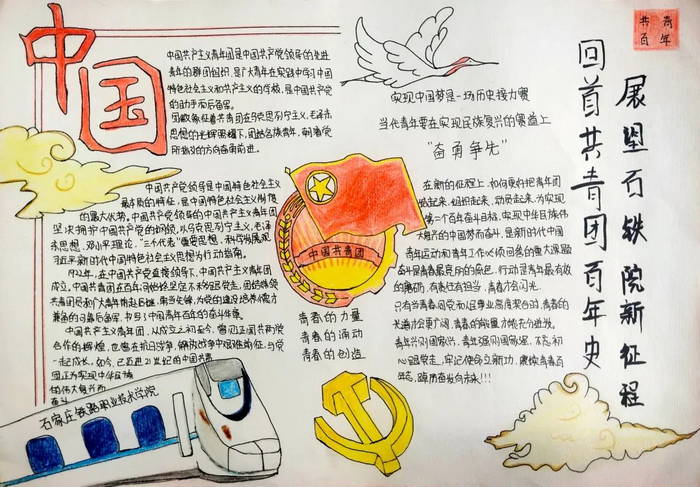 中国
共青
百年
回首共青团百年史
展望石铁院新征程
中国共产主义青年团是中国共产党领导的先进
青年的群团组织,是广大青年在实践中学习中国
特色社会主义和共产主义的学校,是中国共产党
的助手和后备军。
团旗象征着共青团在马克思列宁主义、毛泽东
思想的光辉照耀下,团结各族青年,朝着党
所指引的方向奋勇前进。
实现中国梦是一场历史接力赛
当代青年要在实现民族复兴的赛道上
“奋勇争先”
中国共产党领导是中国特色社会主义
最本质的特征,是中国特色社会主义制度
的最大优势。中国共产党领导的中国共产主义青年团
坚决拥护中国共产党的纲领,以马克思列宁主义、毛泽
东思想、邓小平理论、“三个代表”重要思想、科学发展观、
习近平新时代中国特色社会主义思想为行动指南。
1922年,在中国共产党直接领导下,中国共产主义青年团
成立。中国共青团在百年
共青团员和广大青年
书写了中国青年百年的奋斗华章。
中国共产主义青年团,从成立之初至今,
合作的辉煌,也曾在抗日战争、解放战争中
一起成长,如今,已迈进21世纪的中国共青
团正为实现中华民族
的伟大复兴而
奋斗
石家庄铁路职业技术学院
中国共青团
青春的力量
青春的涌动
青春的创造
在新的征程上,如何更好把青年团
结起来、组织起来、动员起来,为实现
第二个百年奋斗目标、实现中华民族伟
大复兴的中国梦而奋斗,是新时代中国
青年运动和青年工作必须回答的重大课题
奋斗是青春最亮丽的底色,行动是青年最有效
的磨砺。有责任有担当,青春才会闪光。
只有当青春同党和人民事业高度契合时,青春的
光谱才会更广阔,青春的能量才能充分迸发。
青年兴则国家兴,青年强则国家强,